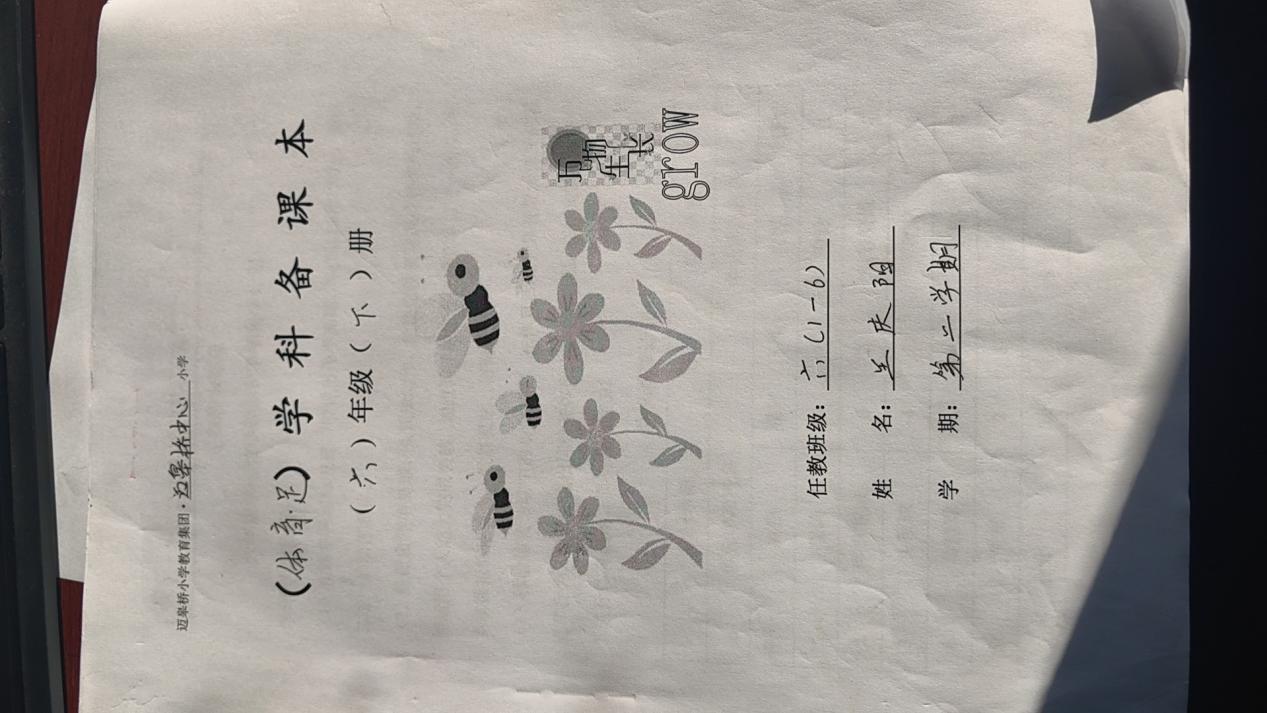 迈皋桥小学教育集团·迈皋桥中心小学
(体育·足)学科备课本
(六)年级(下)册
万物生长
grow
任教班级：六(1-6)
姓 名：兰庆阳
学 期：第二学期